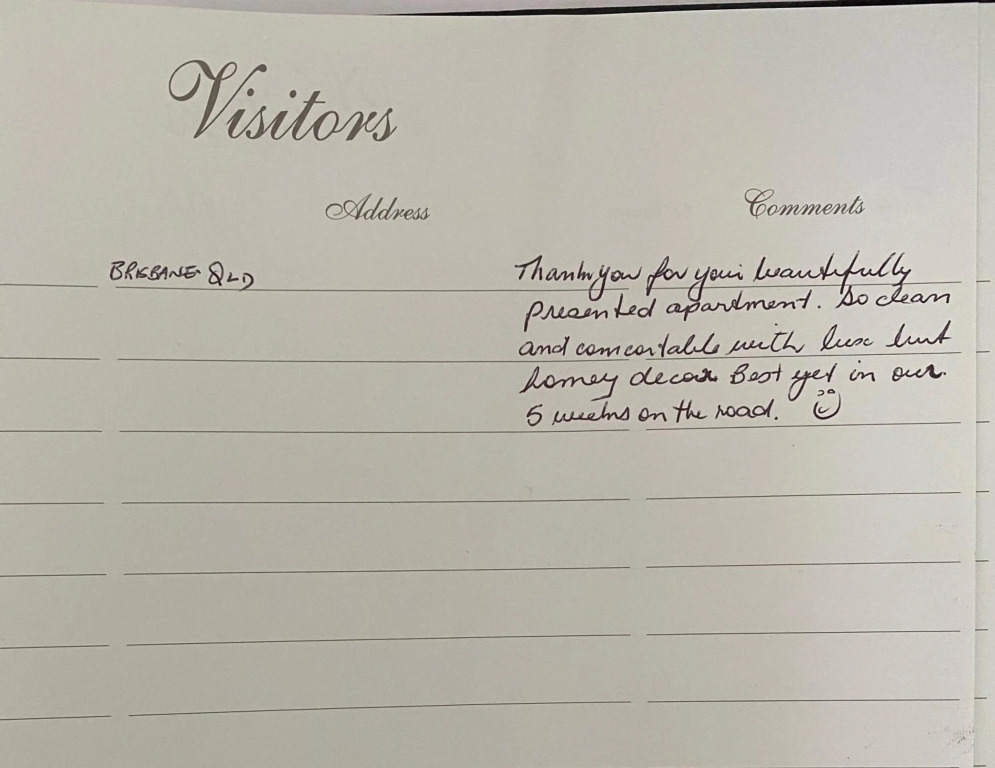 Visitors
Address
Comments
BRISBANE QLD
Thankyou for your beautifully
presented apartment. So clean
and comfortable with luxe but
homey decor. Best yet in our
5 weeks on the road.